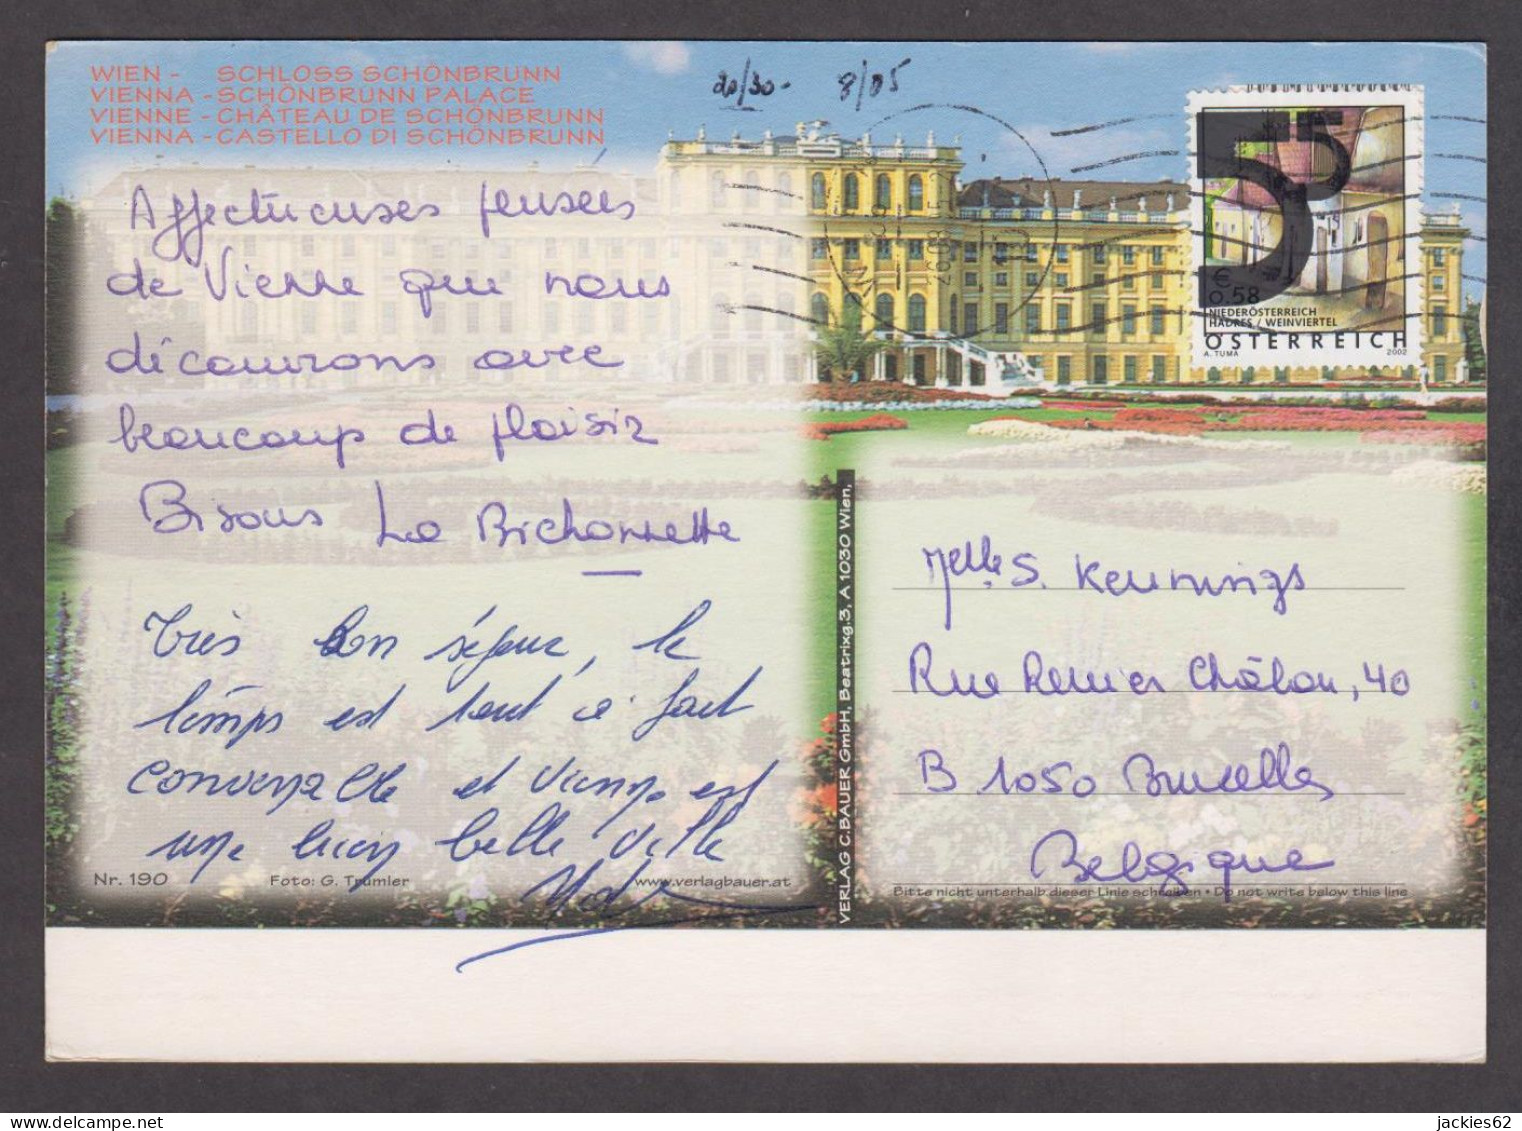 WIEN - SCHLOSS SCHÖNBRUNN
VIENNA - SCHÖNBRUNN PALACE
VIENNE - CHÂTEAU DE SCHÖNBRUNN
VIENNA - CASTELLO DI SCHÖNBRUNN
20/30- 8/05
Affectueuses pensées
de Vienne que nous
découvrons avec
beaucoup de plaisir
Bisous La Bichonnette
Très bon séjour, le
temps est tout à fait
convenable et Vienne est
une bien belle ville
Nr. 190 Foto: G. Trumler www.verlagbauer.at
VERLAG C.BAUER GmbH, Beatrixg.3, A 1030 Wien.
55
€ 0.58
NIEDERÖSTERREICH
HADRES / WEINVIERTEL
ÖSTERREICH
A. TUMA 2002
Melle S. Kennings
Rue Renier Châlon, 40
B 1050 Bruxelles
Belgique
Bitte nicht unterhalb dieser Linie schreiben • Do not write below this line
jackies62